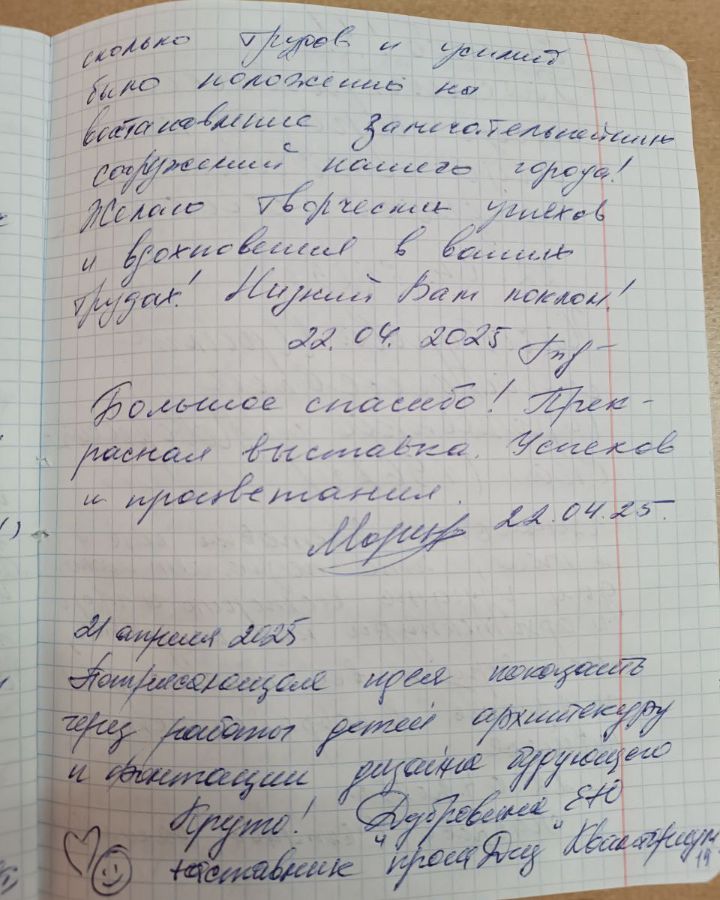 сколько трудов и усилий
было положено на
востановление замечательнейших
сооружений нашего города!
Желаю творческих успехов
и вдохновения в ваших
трудах! Низкий Вам поклон!
22.04.2025
Большое спасибо! Прек-
расная выставка. Успехов
и процветания.
22.04.25.
21 апреля 2025
Потрясающая идея показать
через работы детей архитектуру
и фантации дизайна будующего
Круто! Дубровина ЕЮ
наставник "пром Диз" Кванториум